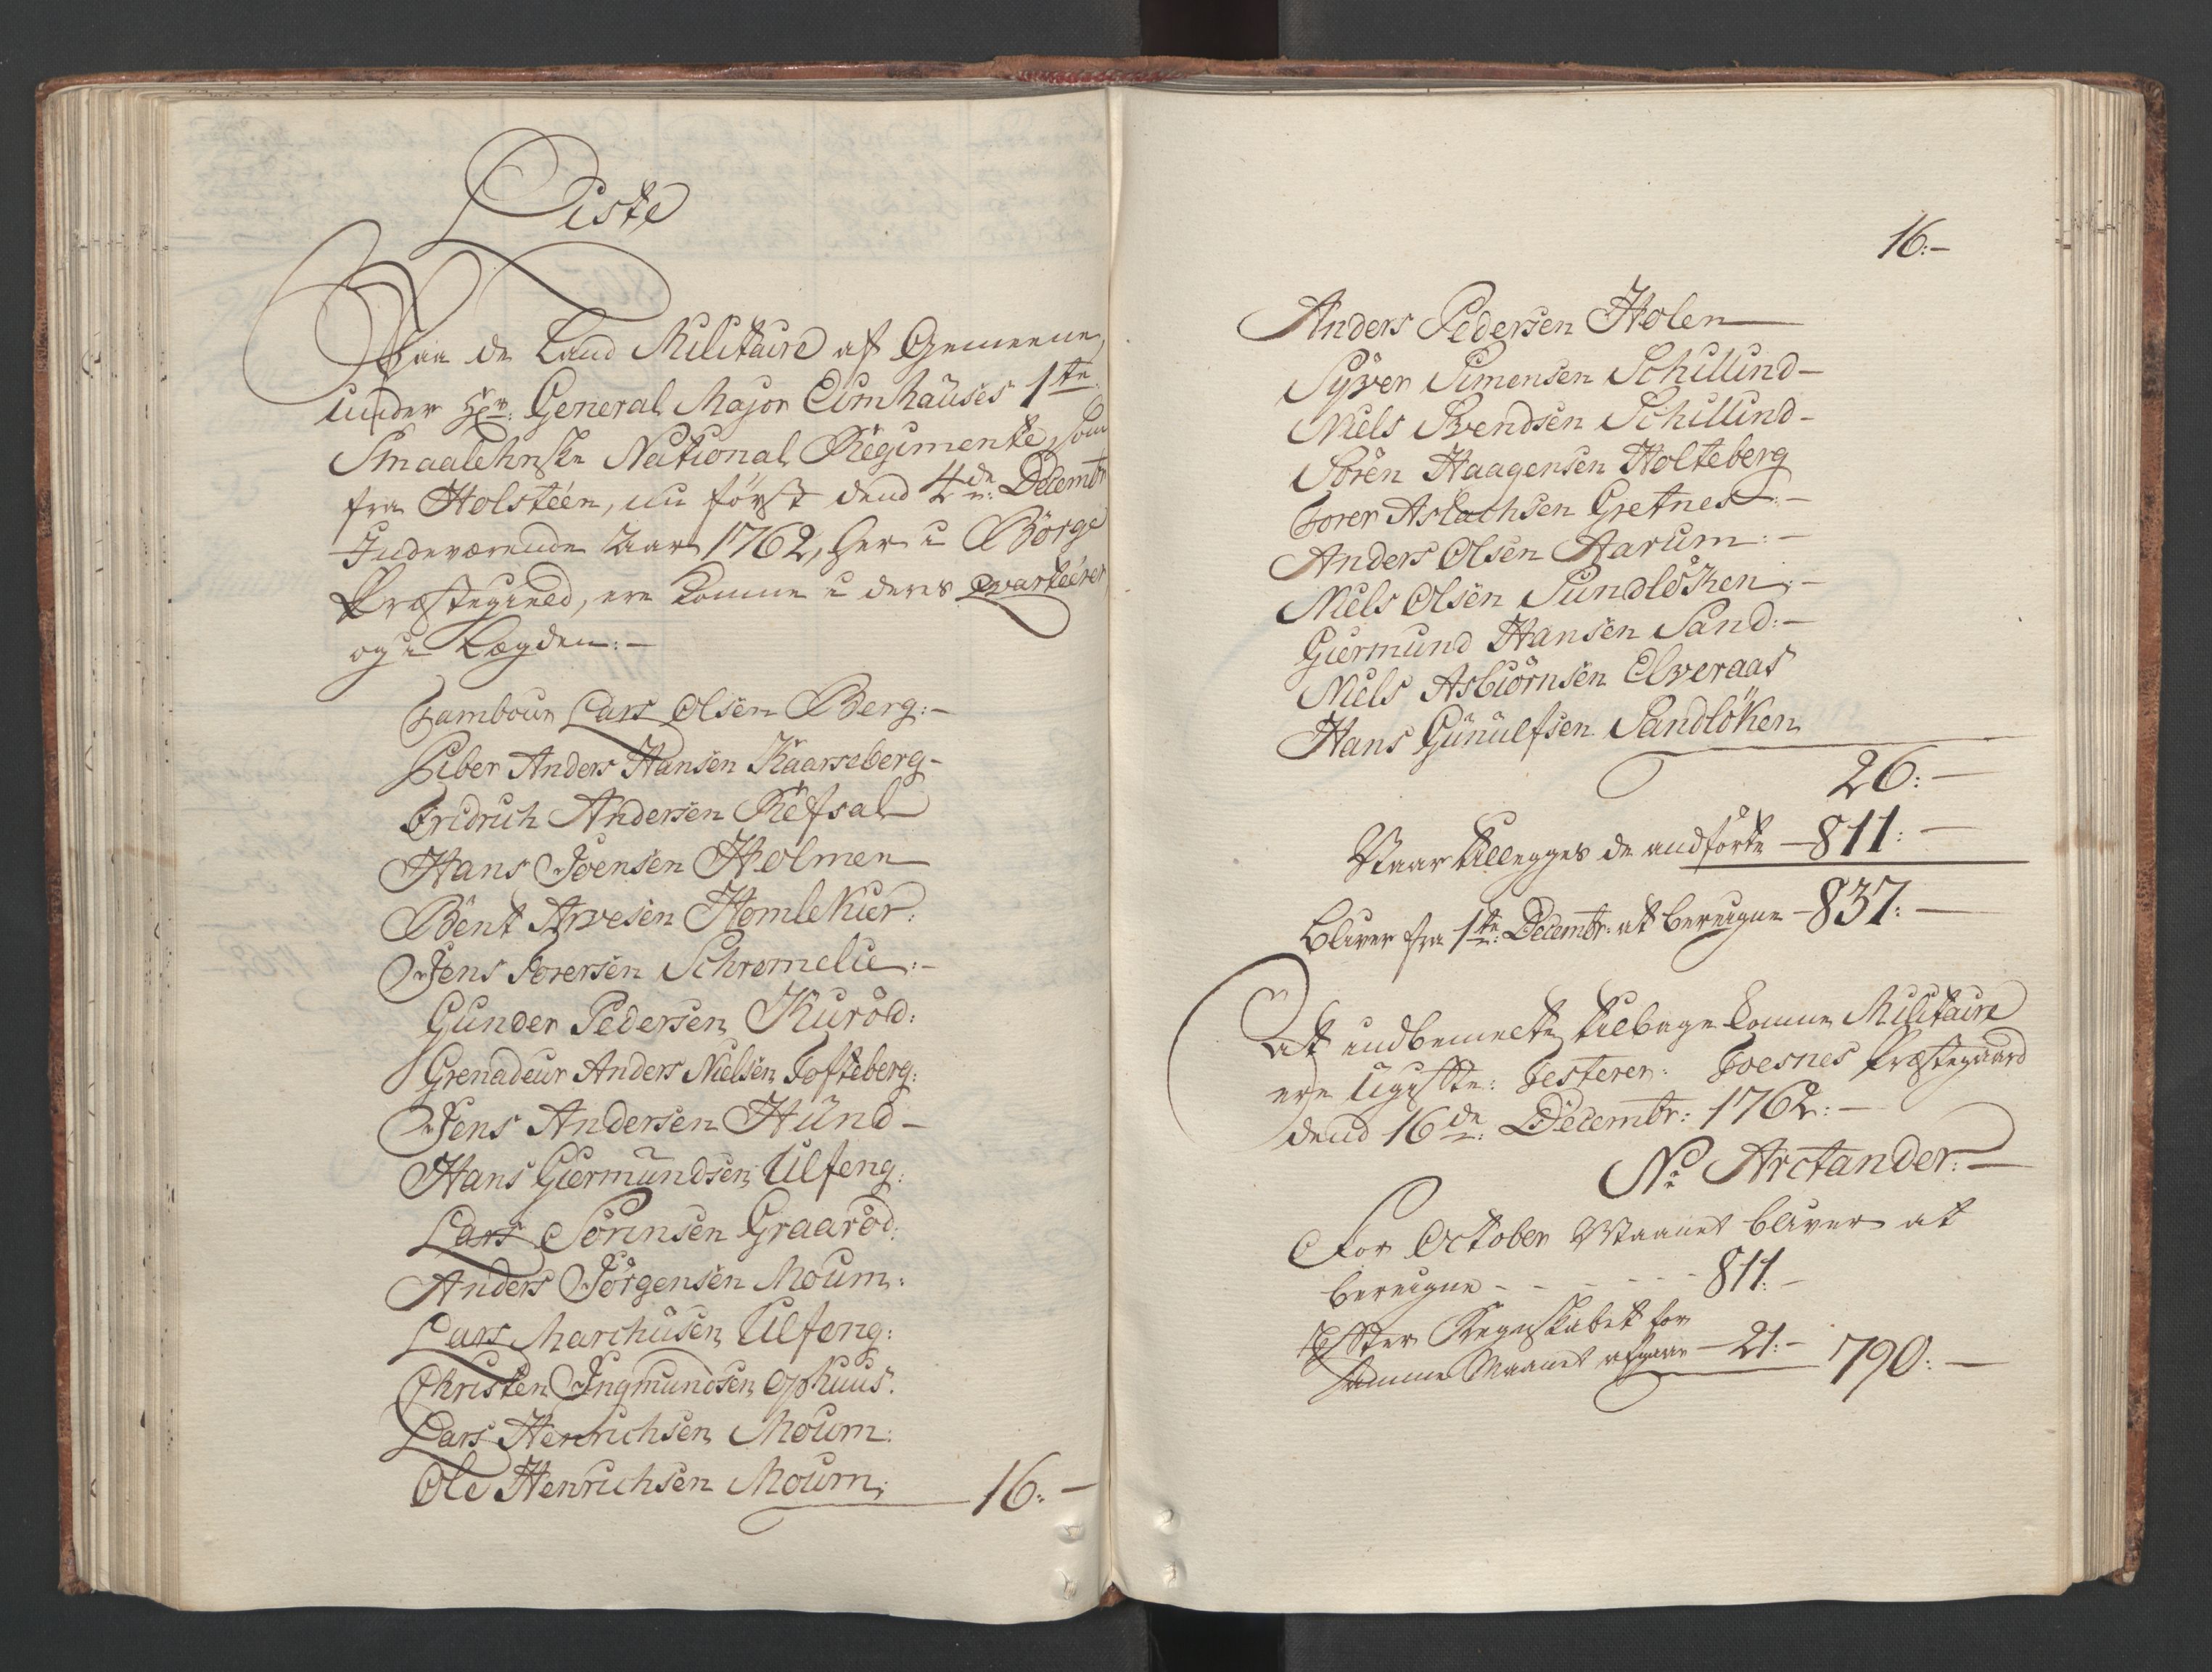 Liste
Paa de Land Militaire af Gemeene,
under Hr: General Major Eimhauses 1ste
Smaalehnske National Regimente, som
fra Holsteen, nu först dend 4de: Decembr
Indeværende Aar 1762, her i Börge
Præstegield, ere komne i deres qvarteerer
og i Lægden:-
Tambour Lars Olsen Berg:-
Piber Anders Hansen Kaarseberg-
Fridrich Andersen Refsal
Hans Joensen Holmen
Bent Arvesen Homlekier:
Jens Torersen Schremelie:-
Gunder Pedersen Kuröd:
Grenadeur Anders Nielsen Tofteberg:
Jens Andersen Hund-
Hans Giermundsen Ulfeng:
Lars Sörensen Graaröd:
Anders Jörgensen Moum:
Lars Marchusen Ulfeng:
Christen Ingmundsen Ophuus:
Lars Henrichsen Moum:
Ole Henrichsen Moum: 16:-
16:-
Anders Pedersen Holen
Syver Simensen Schillind-
Niels Svendsen Schillind-
Sören Haagensen Holteberg
Torer Aslachsen Gretnes:-
Anders Olsen Aarum:-
Niels Olsen Sundlöken:-
Giermund Hansen Sand:-
Niels Asbiörnsen Elveraas
Hans Gunulfsen Sandlöken
26:-
Naar tillegges de andförte -811:-
bliver fra 1te: Decembr: at bereigne -837:-
At indbemelte tilbage komne Militaire
ere rigtte: Testerer: Toesnes Præstegaard
dend 16de: Decembr: 1762:-
Ns Arctander:-
For October Maanet bliver at
bereigne - - - - - 811:-
Efter Regnskabet for
samme Maanet afgaar -21:- 790:-